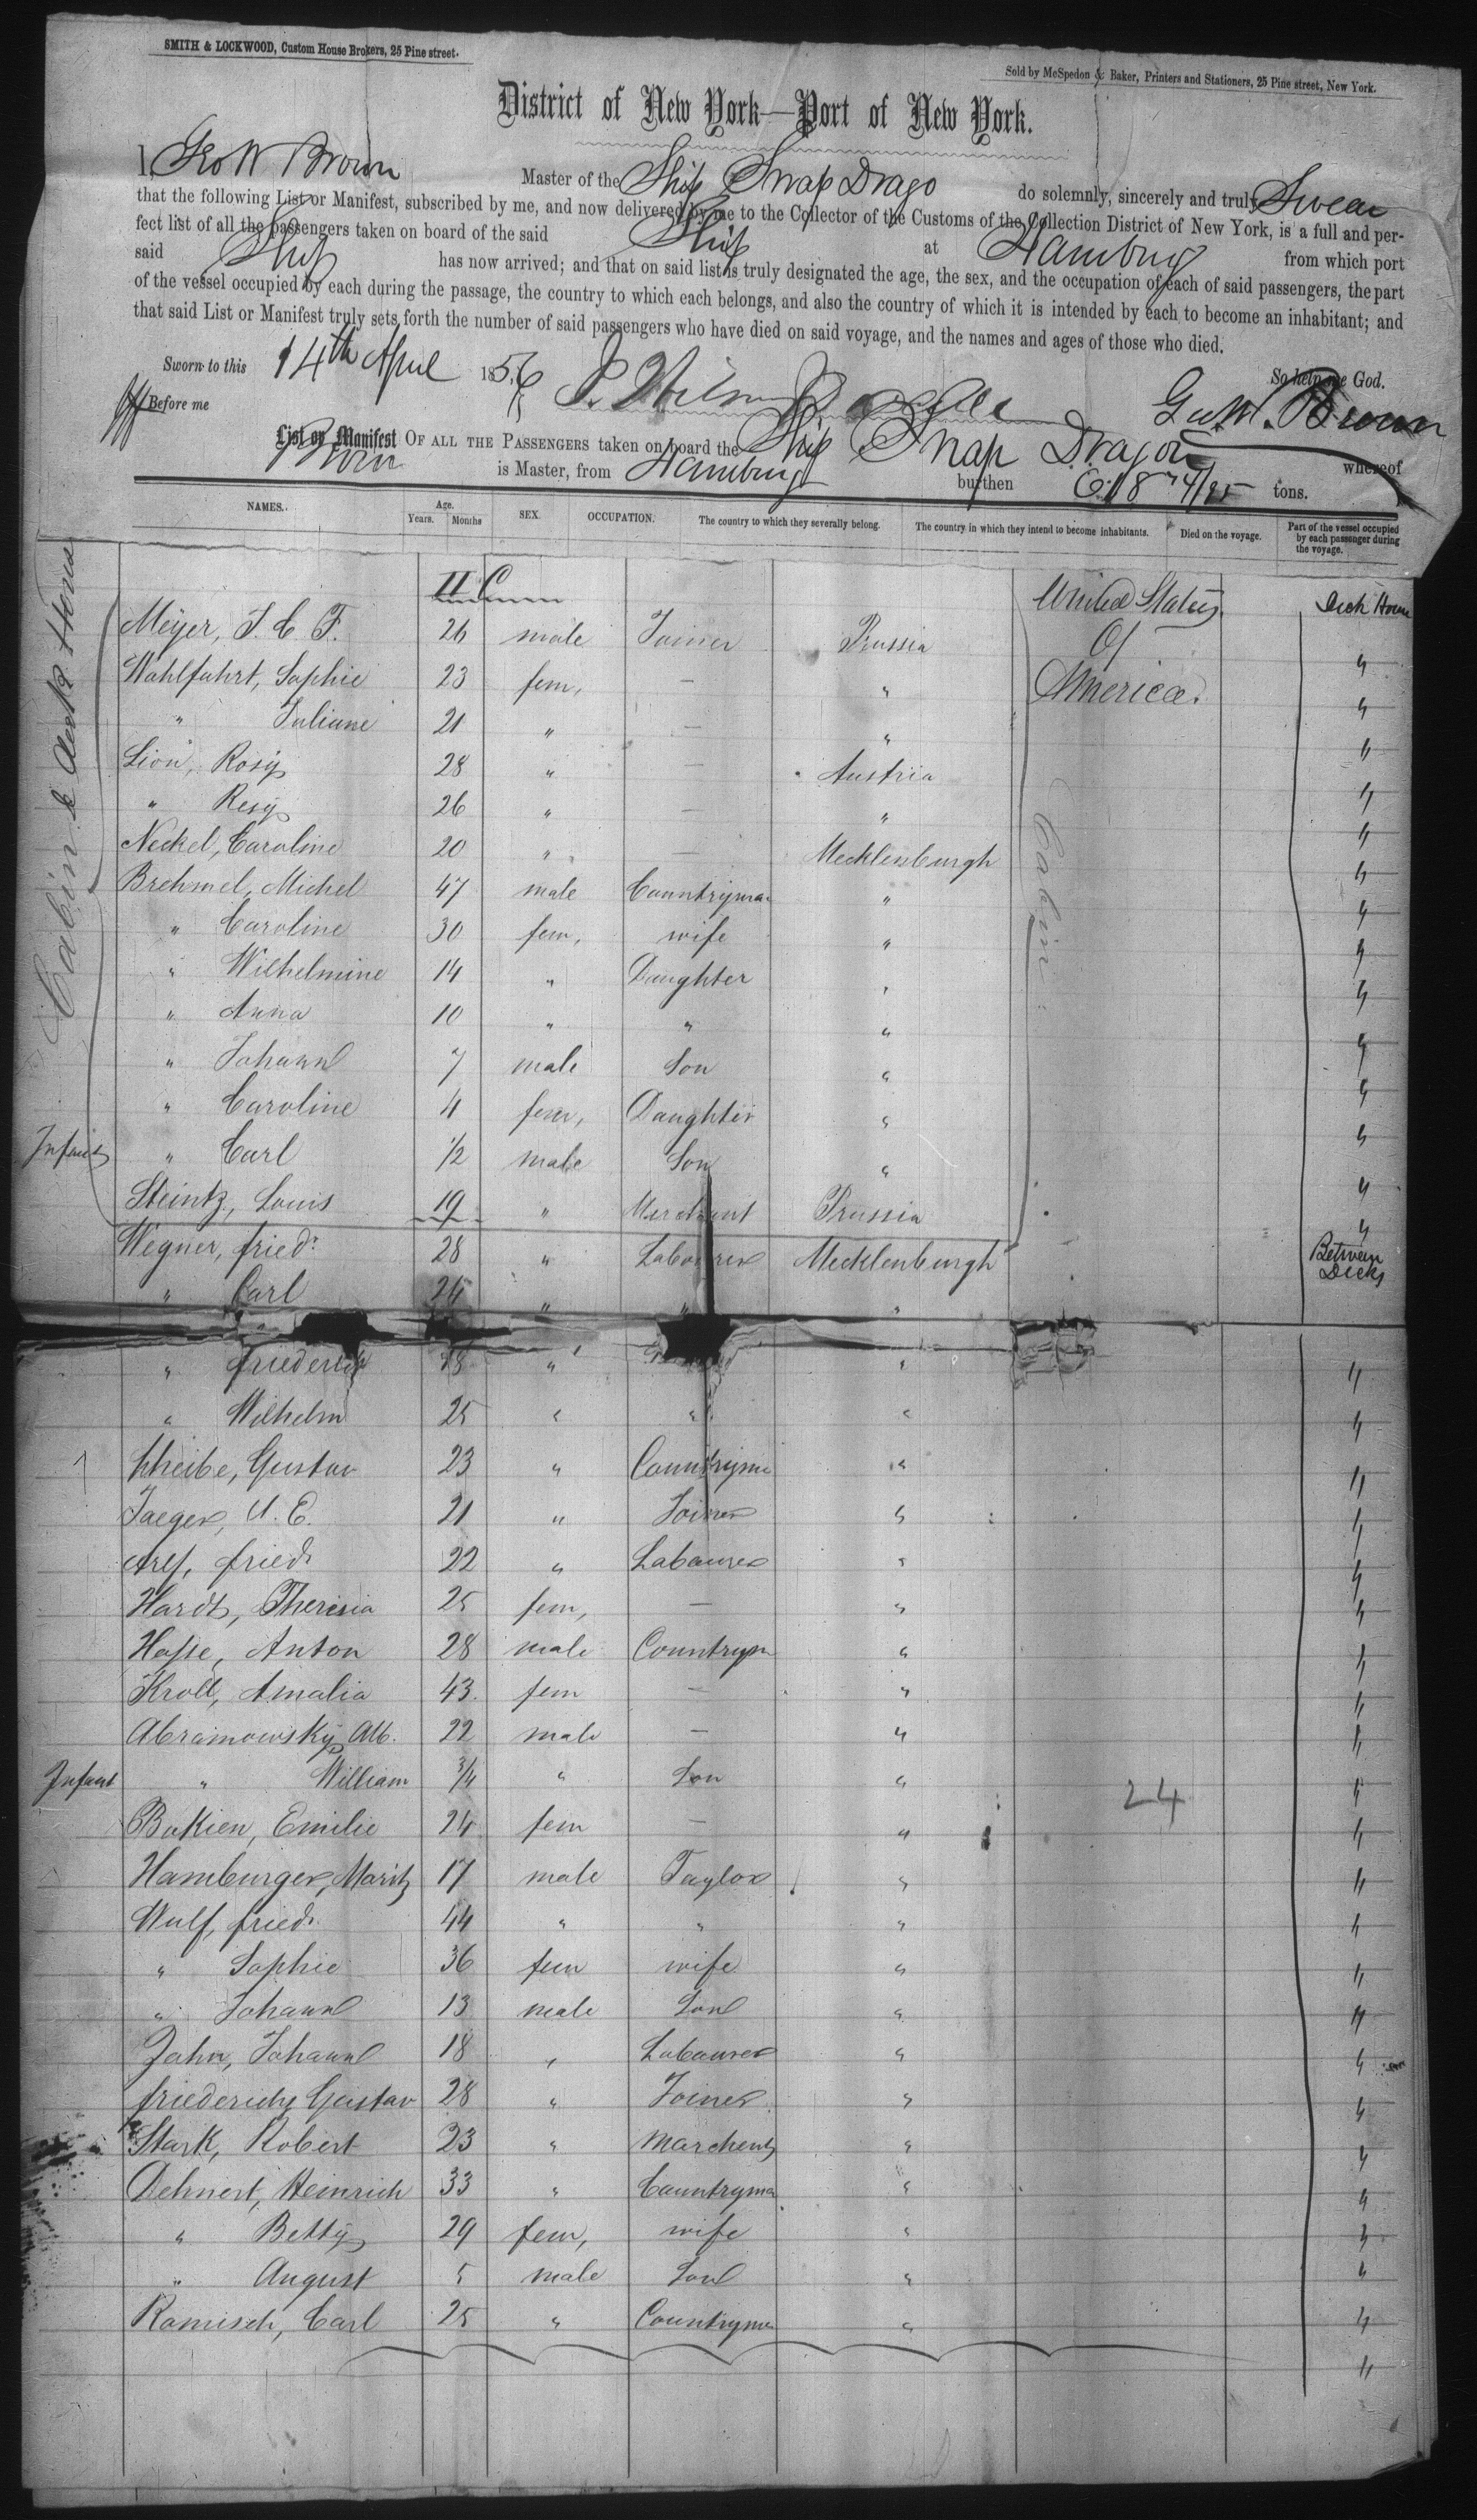 SMITH & LOCKWOOD, Custom House Brokers, 25 Pine street.
Sold by McSpedon & Baker, Printers and Stationers, 25 Pine street, New York.
District of New York—Port of New York.
I, Geo W Brown Master of the Ship Snap Drago do solemnly, sincerely and truly Swear
that the following List or Manifest, subscribed by me, and now delivered by me to the Collector of the Customs of the Collection District of New York, is a full and per-
fect list of all the passengers taken on board of the said Ship at Hamburg from which port
said Ship has now arrived; and that on said list is truly designated the age, the sex, and the occupation of each of said passengers, the part
of the vessel occupied by each during the passage, the country to which each belongs, and also the country of which it is intended by each to become an inhabitant; and
that said List or Manifest truly sets forth the number of said passengers who have died on said voyage, and the names and ages of those who died.
Sworn to this 14th April 1856 So help me God.
Before me Geo W. Brown
List or Manifest OF ALL THE PASSENGERS taken on board the Ship Snap Dragon whereof
Brown is Master, from Hamburg burthen 618 74/95 tons.
NAMES. Age. Years. Months SEX. OCCUPATION. The country to which they severally belong. The country in which they intend to become inhabitants. Died on the voyage. Part of the vessel occupied by each passenger during the voyage.
Cabin & deck House
II C United States Deck House
Meyer, J. C. F. 26 male Joiner Prussia Of "
Wahlfahrt, Sophie 23 fem, — " America. "
" Juliane 21 " — " "
Lion, Rosy 28 " — Austria "
" Resy 26 " — " "
Neckel, Caroline 20 " — Mecklenburgh "
Cabin
Brehmel, Michel 47 male Countryman " "
" Caroline 30 fem, wife " "
" Wilhelmine 14 " Daughter " "
" Anna 10 " " " "
" Johann 7 male Son " "
" Caroline 4 fem, Daughter " "
Infant " Carl 1/2 male Son " "
Steintz, Louis 19 " Merchant Prussia "
Wegner, fried: 28 " Labourer Mecklenburgh Between Decks
" Carl 24 " " "
" friederich 18 " " "
" Wilhelm 25 " " " "
Scheibe, Gustav 23 " Countrym " "
Jaeger, A. E. 21 " Joiner " "
Arlf, fried. 22 " Labourer " "
Hardt, Theresia 25 fem, — " "
Hasse, Anton 28 male Countrym " "
Kroll, Amalia 43. fem — " "
Abramowsky, Alb. 22 male — " "
Infant " William 3/4 " Son " 24 "
Bukien, Emilie 24 fem — " "
Hamburger, Moritz 17 male Taylor " "
Wulf, fried. 44 " " " "
" Sophie 36 fem wife " "
" Johann 13 male Son " "
Jahn, Johann 18 " Labourer " "
friederichs Gustav 28 " Joiner " "
Stark, Robert 23 " Marchent " "
Dehnert, Heinrich 33 " Countryma " "
" Betty 29 fem, wife " "
" August 5 male Son " "
Romisch, Carl 25 " Countryme " "
"